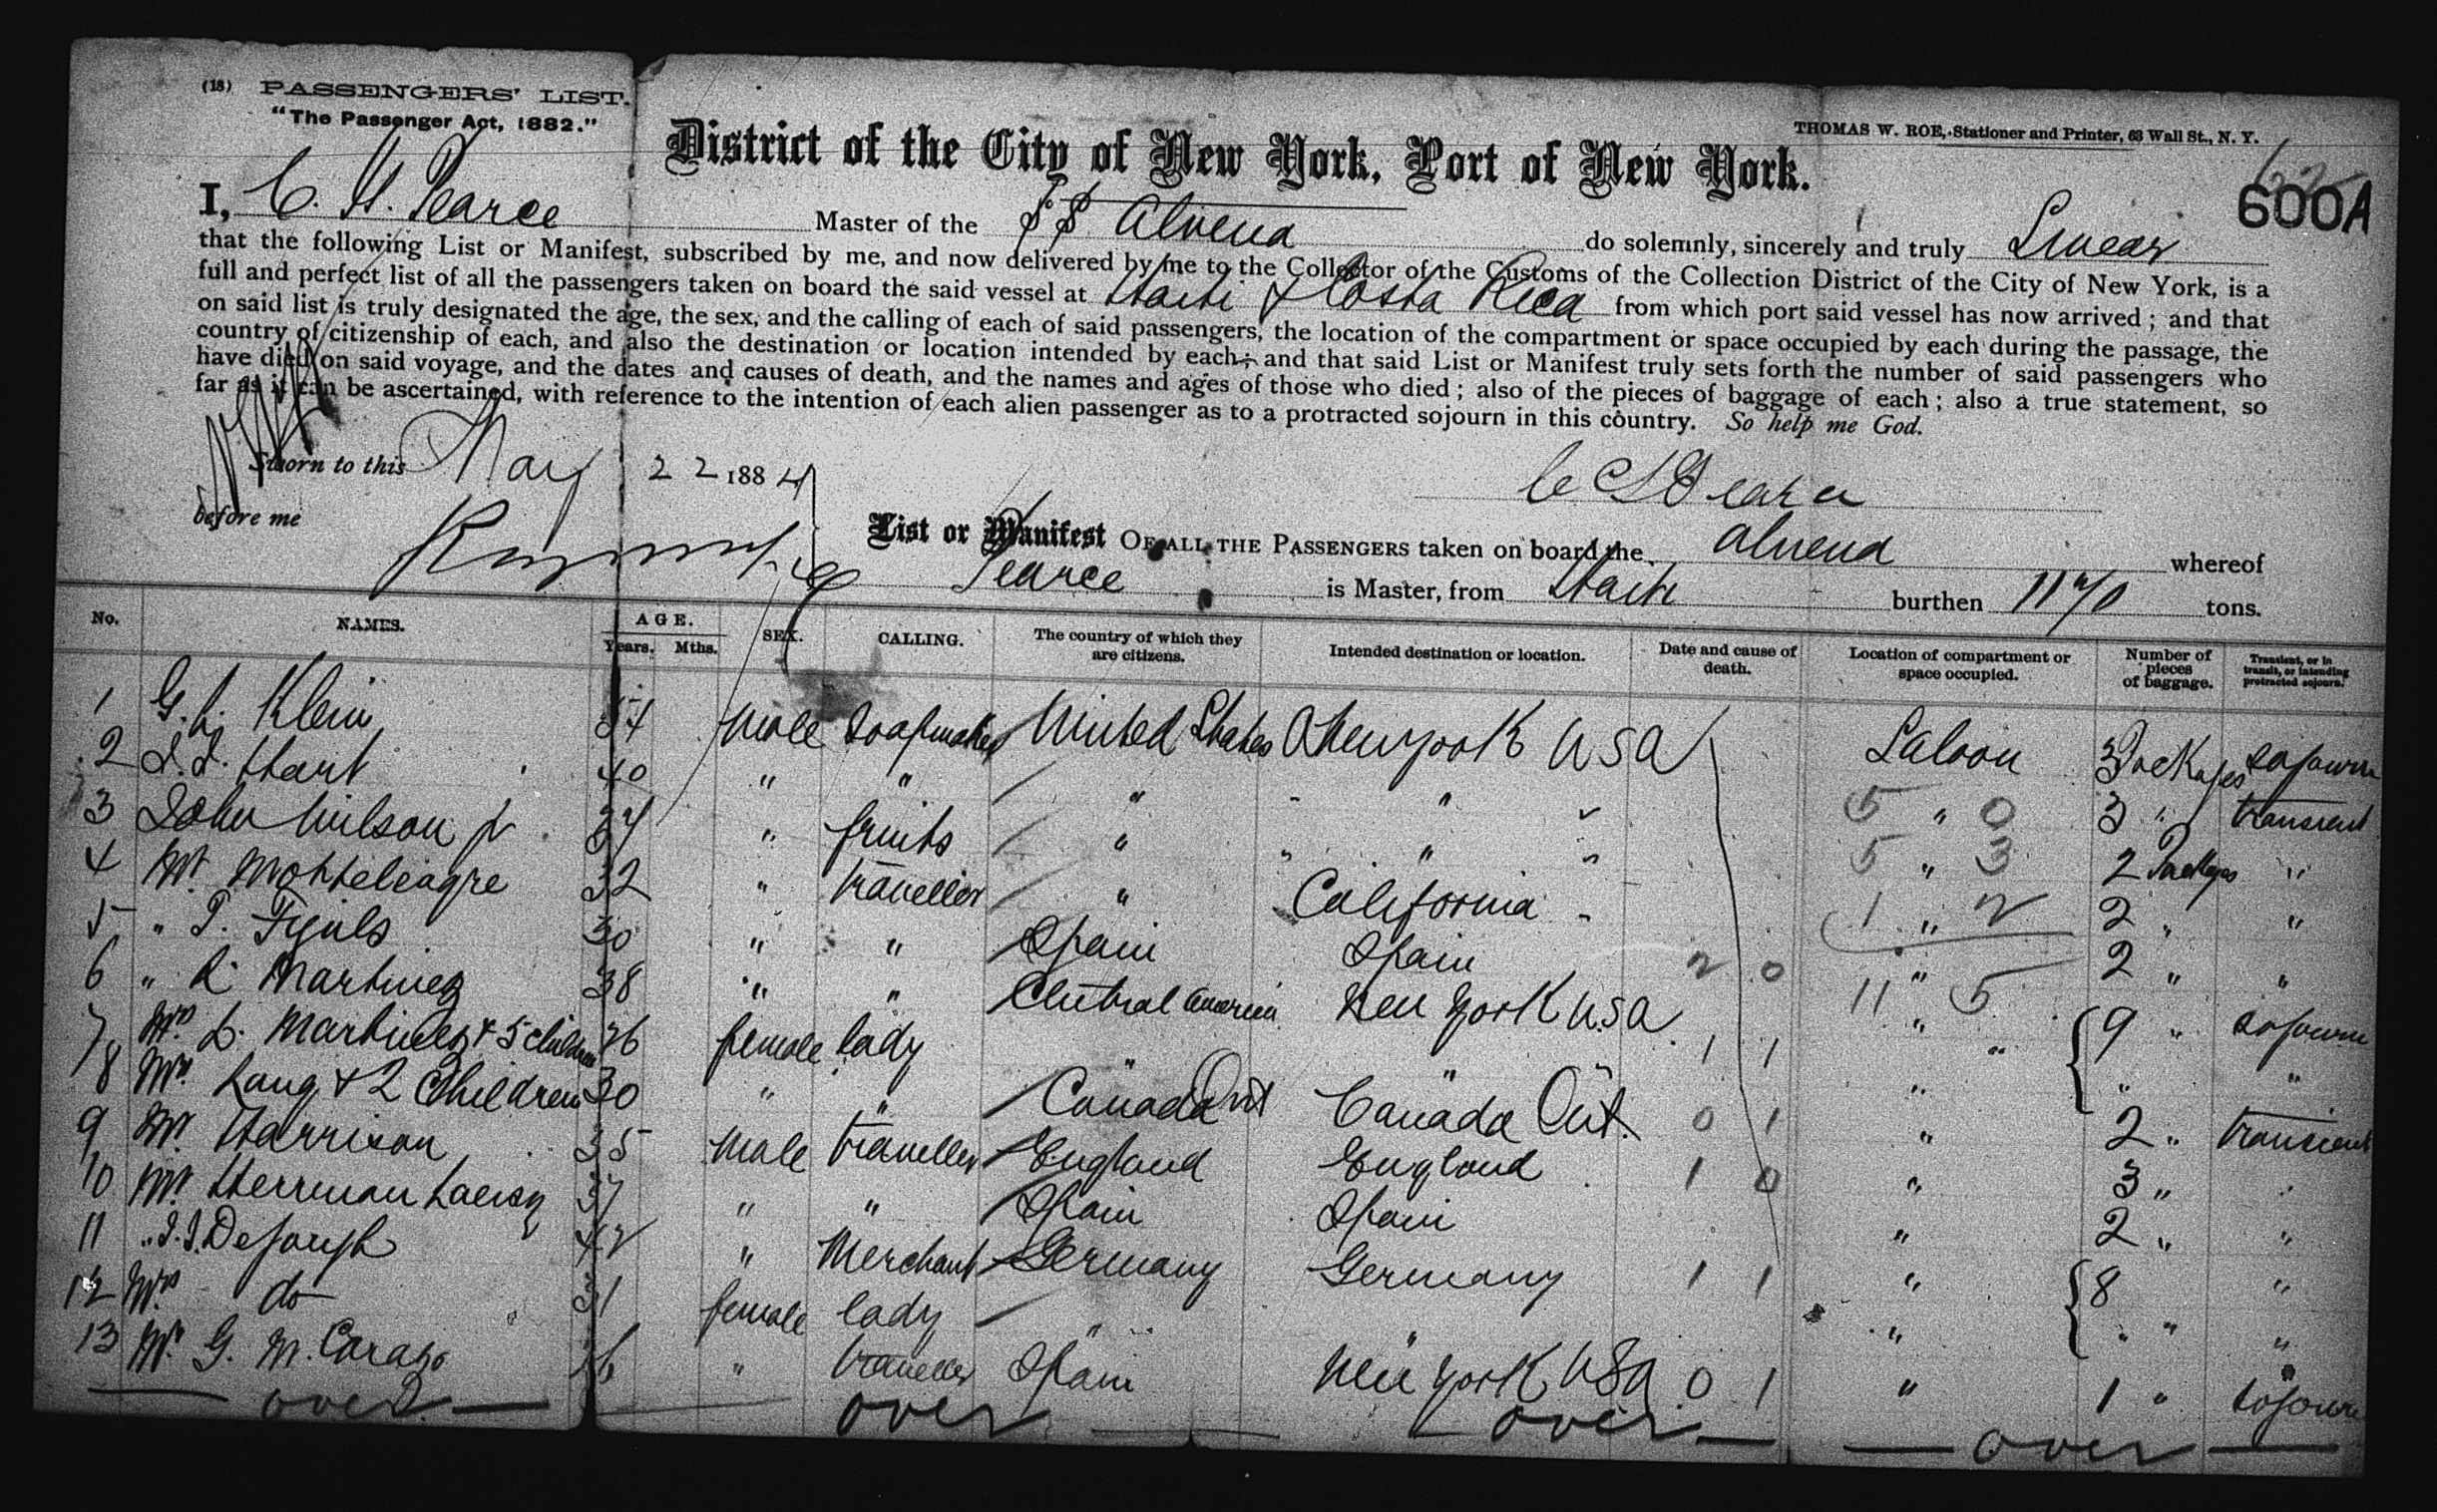 (18) PASSENGERS' LIST.
"The Passenger Act, 1882."
THOMAS W. ROE, Stationer and Printer, 63 Wall St., N. Y.
District of the City of New York, Port of New York.
600A
I, C. H. Pearce Master of the SS Alvena do solemnly, sincerely and truly Swear
that the following List or Manifest, subscribed by me, and now delivered by me to the Collector of the Customs of the Collection District of the City of New York, is a
full and perfect list of all the passengers taken on board the said vessel at Haiti & Costa Rica from which port said vessel has now arrived; and that
on said list is truly designated the age, the sex, and the calling of each of said passengers, the location of the compartment or space occupied by each during the passage, the
country of citizenship of each, and also the destination or location intended by each; and that said List or Manifest truly sets forth the number of said passengers who
have died on said voyage, and the dates and causes of death, and the names and ages of those who died; also of the pieces of baggage of each; also a true statement, so
far as it can be ascertained, with reference to the intention of each alien passenger as to a protracted sojourn in this country. So help me God.
Sworn to this May 22 1884
before me
List or Manifest OF ALL THE PASSENGERS taken on board the Alvena whereof
Pearce is Master, from Haiti burthen 1170 tons.
No. NAMES. AGE. Years. Mths. SEX. CALLING. The country of which they are citizens. Intended destination or location. Date and cause of death. Location of compartment or space occupied. Number of pieces of baggage. Transient, or in transit, or intending protracted sojourn.
1 G. L. Klein 54 Male Soapmaker United States Newyork USA Saloon 3 Packages sojourn
2 Hart 40 " " " " " 3 " transient
3 John Wilson Jr 37 " fruits " " " 2 Packages "
4 Mr. Monteleagre 32 " traveller " California " 2 " "
5 " 30 " " Spain Spain " 2 " "
6 " Martinez 38 " " Central America New York USA " 9 " sojourn
7 Mrs L. Martinez & 5 children 26 female lady " " " " "
8 Mrs. Lang & 2 Children 30 " " Canada Ont Canada Ont. " 2 " transient
9 Mr. Harrison 35 Male traveller England England " 3 "
10 Mr. Herrman 37 " " Spain Spain " 2 " "
11 " 42 " Merchant Germany Germany " 8 "
12 Mrs do 31 female lady " " " " " "
13 Mr. G. M. Carazo " traveller Spain New York USA " 1 " sojourn
over over over over